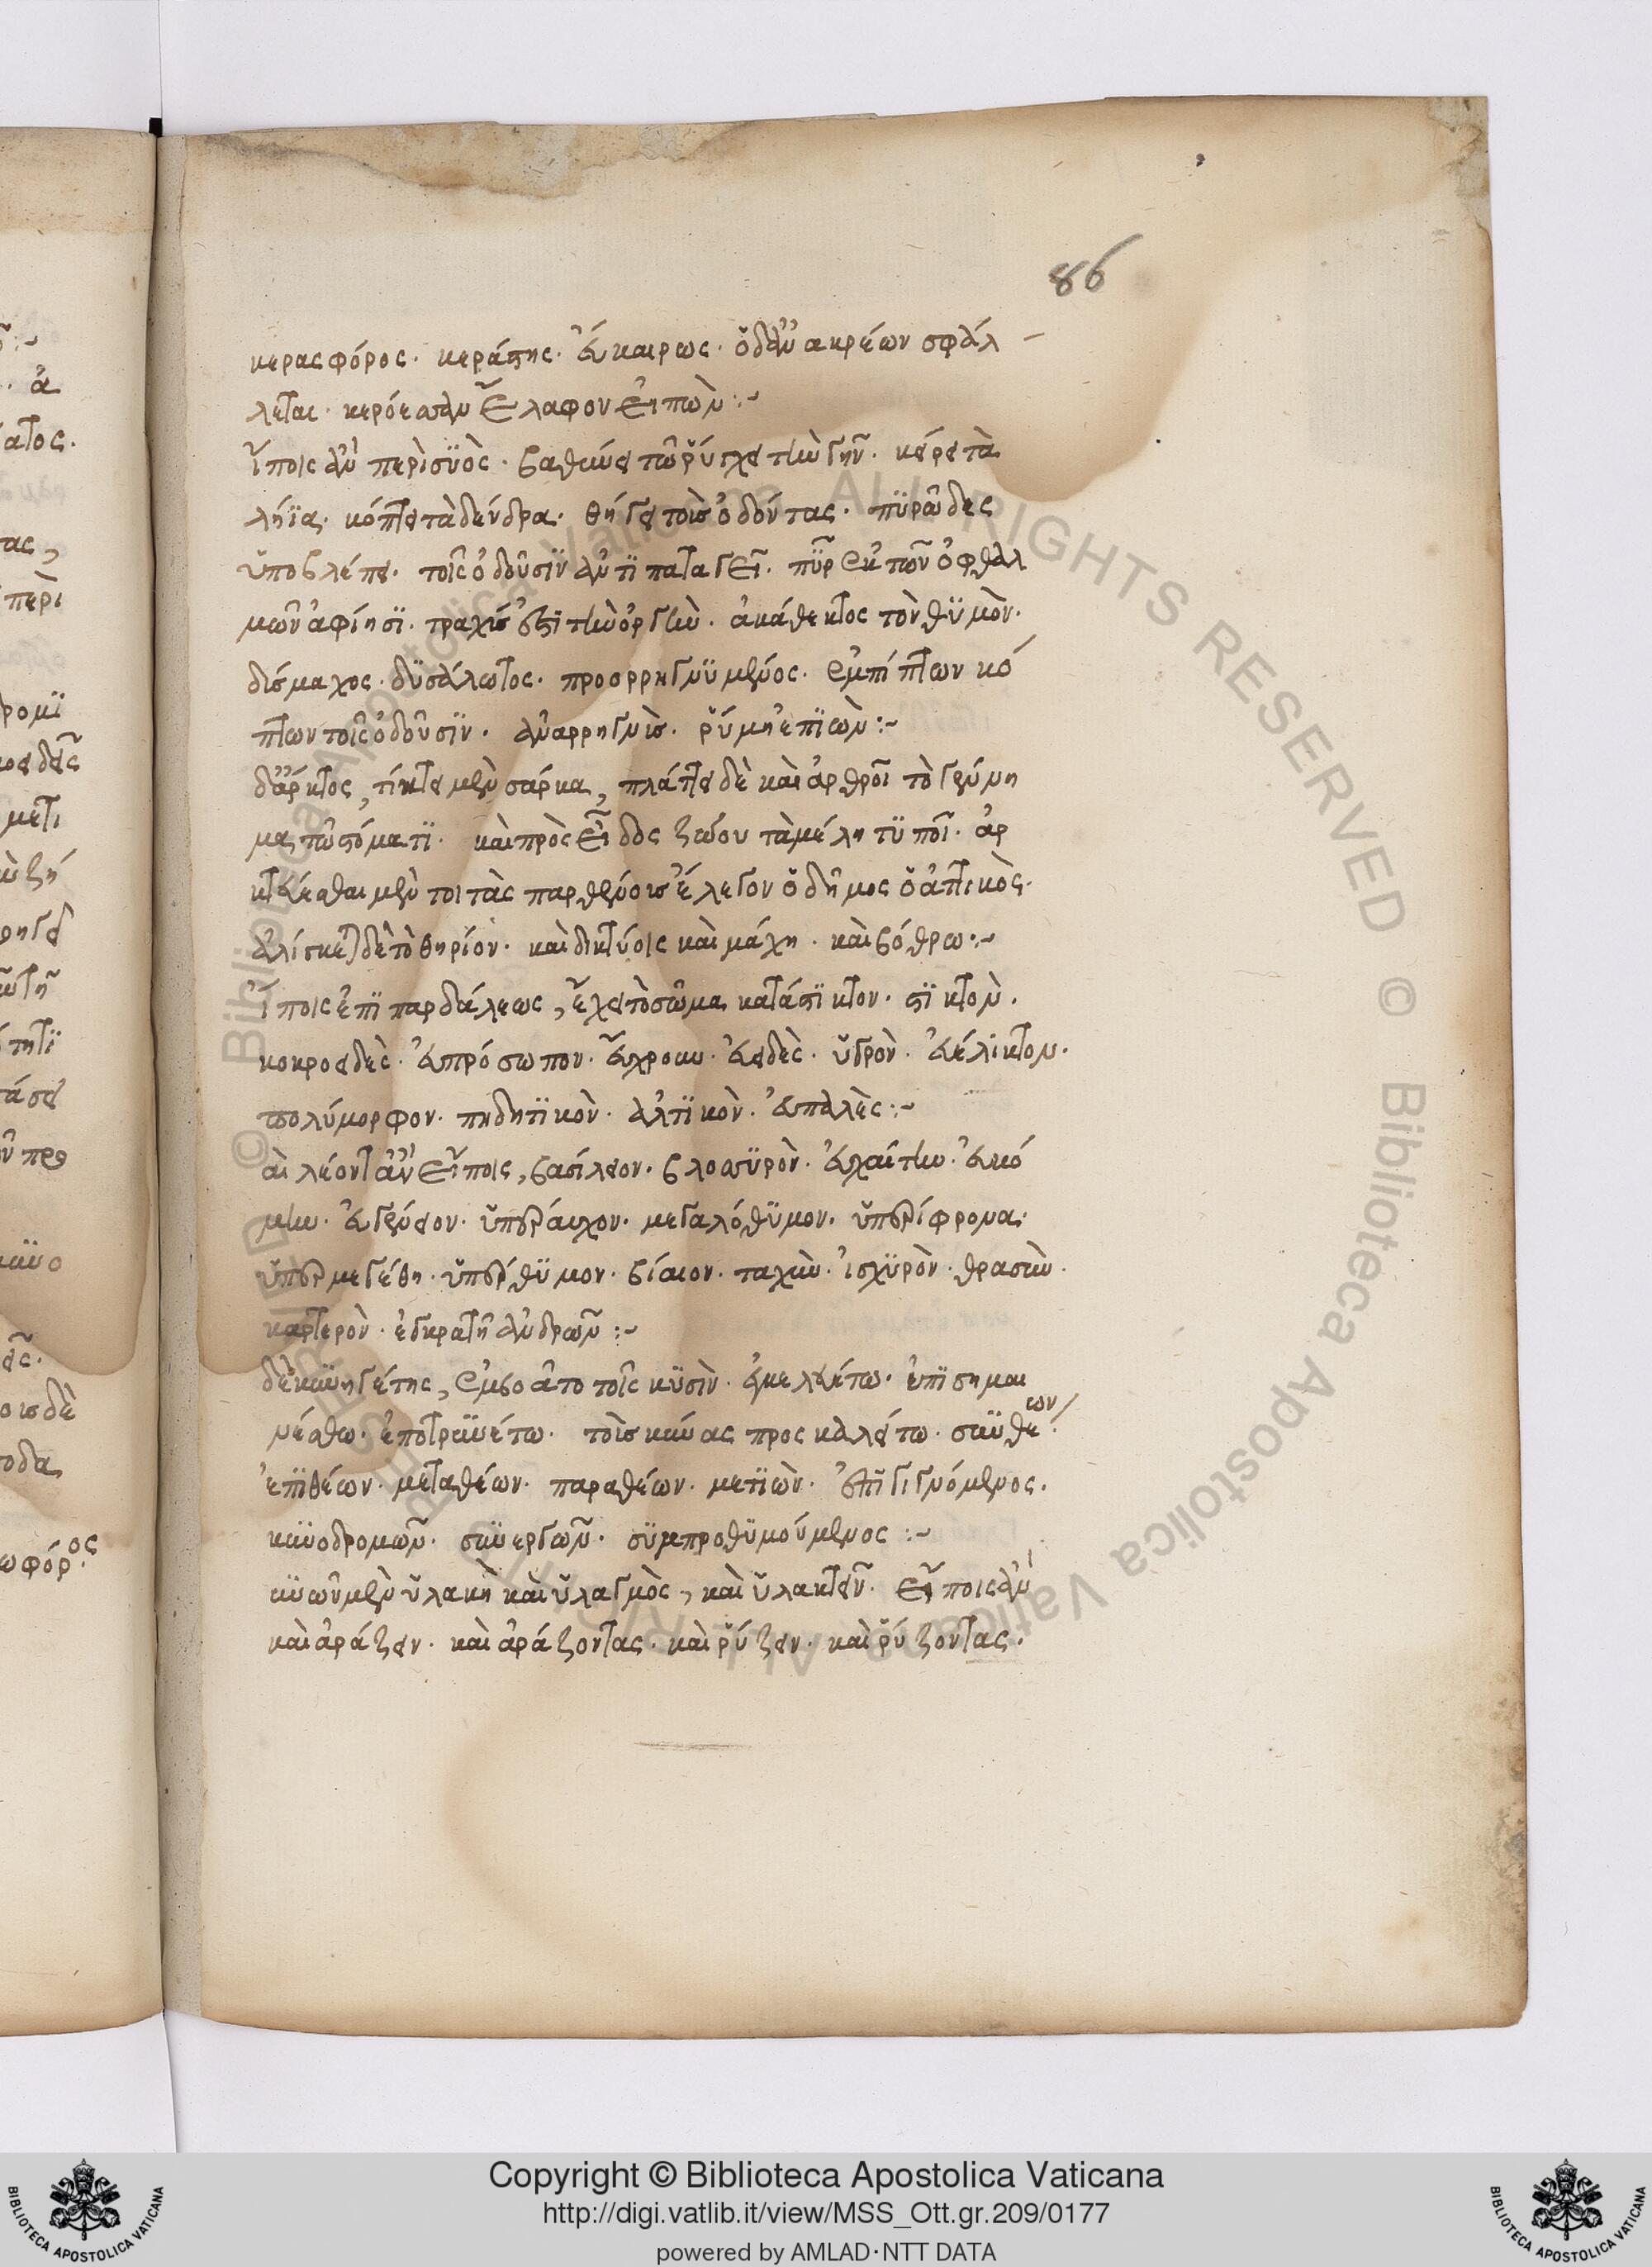 86
κερασφόρος. κεράστης. εὔκαιρως. ὁδ' ἂν ἀκρέων σφάλ
λεται. κερόεσσαν ἔλαφον εἰπών :~
εἴποις ἂν περὶ συὸς. βαθείας τῶ ῥύγχει τὴν γῆν. κείρει τὰ
λήϊα. κόπτει τὰ δένδρα. θήγει τοὺς ὀδόντας. πυρῶδες
ὑποβλέπει. τοῖς ὀδοῦσιν ἀντιπαταγεῖ. πῦρ ἐκ τῶν ὀφθαλ
μῶν ἀφίησι. τραχὺς ἐστὶ τὴν ὀργὴν. ἀκάθεκτος τὸν θυμὸν.
δύσμαχος. δυσάλωτος. προσρηγνύμενος. ἐμπίπτων κό
πτων τοῖς ὀδοῦσιν. ἀναρρηγνὺς. ῥύμη ἐπιὼν :~
δ' ἄρκτος, τίκτει μὲν σάρκα, πλάττει δὲ καὶ ἀρθροῖ τὸ γέννη
μα τῶ στόματι. καὶ πρὸς εἶδος ζώου τὰ μέλη τυποῖ. ἀρ
κτεύεσθαι μὲν τοι τὰς παρθένους ἔλεγον ὁ δῆμος ὁ ἀττικὸς.
ἁλίσκεται δὲ τὸ θηρίον. καὶ δικτύοις καὶ μάχη. καὶ βόθρω :~
εἴποις ἐπὶ παρδάλεως, ἔχει τὸ σῶμα κατάστικτον. στικτὸν.
κροκοειδὲς. εὐπρόσωπον. εὔχρουν. εὐειδὲς. ὑγρὸν. εὐέλικτον.
πολύμορφον. πηδητικὸν. ἁλτικὸν. εὐπαλὲς :~
αἱ λέοντ' ἂν εἴποις, βασίλειον. βλοσυρὸν. εὐχαίτην. εὔκο
μην. εὐγένειον. ὑπέραυχον. μεγαλόθυμον. ὑπερίφρονα.
ὑπερμεγέθη. ὑπέρθυμον. βίαιον. ταχὺν. ἰσχυρὸν. θρασὺν.
καρτερὸν. ἐγκρατῆ ἀνδρῶν :~
δὲ κυνηγέτης, ἐμβοάτο τοῖς κυσὶν. ἐγκελευέτω. ἐπισημαι
νέσθω. ἐποτρυνέτω. τοὺς κύνας προσκαλείτω. συνθέων
ἐπιθέων. μεταθέων. παραθέων. μετιὼν. ἐπιγιγνόμενος.
κυνοδρομῶν. συνεργῶν. συμπροθυμούμενος :~
κυνῶν μὲν ὑλακὴ καὶ ὑλαγμὸς, καὶ ὑλακτεῖν. εἴποις ἂν
καὶ ἀράζειν. καὶ ἀράζοντας. καὶ ῥύζειν. καὶ ῥύζοντας.
Copyright © Biblioteca Apostolica Vaticana
http://digi.vatlib.it/view/MSS_Ott.gr.209/0177
powered by AMLAD·NTT DATA